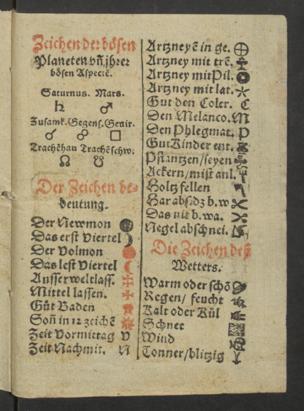 Zeichen der bösen
Planeten vñ jhrer
bösen Aspecte.
Saturnus. Mars.
♄ ♂
Zusamk. Gegens. Gevir.
☌ ☍ □
Trachẽhau Trachẽschw.
☊ ☋
Der Zeichen be-
deutung.
Der Newmon
Das erst Viertel
Der Volmon
Das lest Viertel
Ausserweltlass.
Mittel lassen.
Gůt Baden
Soñ in 12 zeichẽ
Zeit Vormittag V
Zeit Nachmit. N
Artzneyẽ in ge.
Artzney mit trẽ.
Artzney mit Pil.
Artzney mit lat.
Gut den Coler. C
Den Melanco. M
Den Phlegmat. P
Gut Kinder ent.
Pflantzen/seyen
Ackern/mist anl.
Holtz fellen
Har absdz b.w
Das nit b.wa.
Negel abschnei.
Die Zeichen deß
Wetters.
Warm oder schö
Regen/ feucht
Kalt oder Kül
Schnee
Wind
Tonner/blitzig